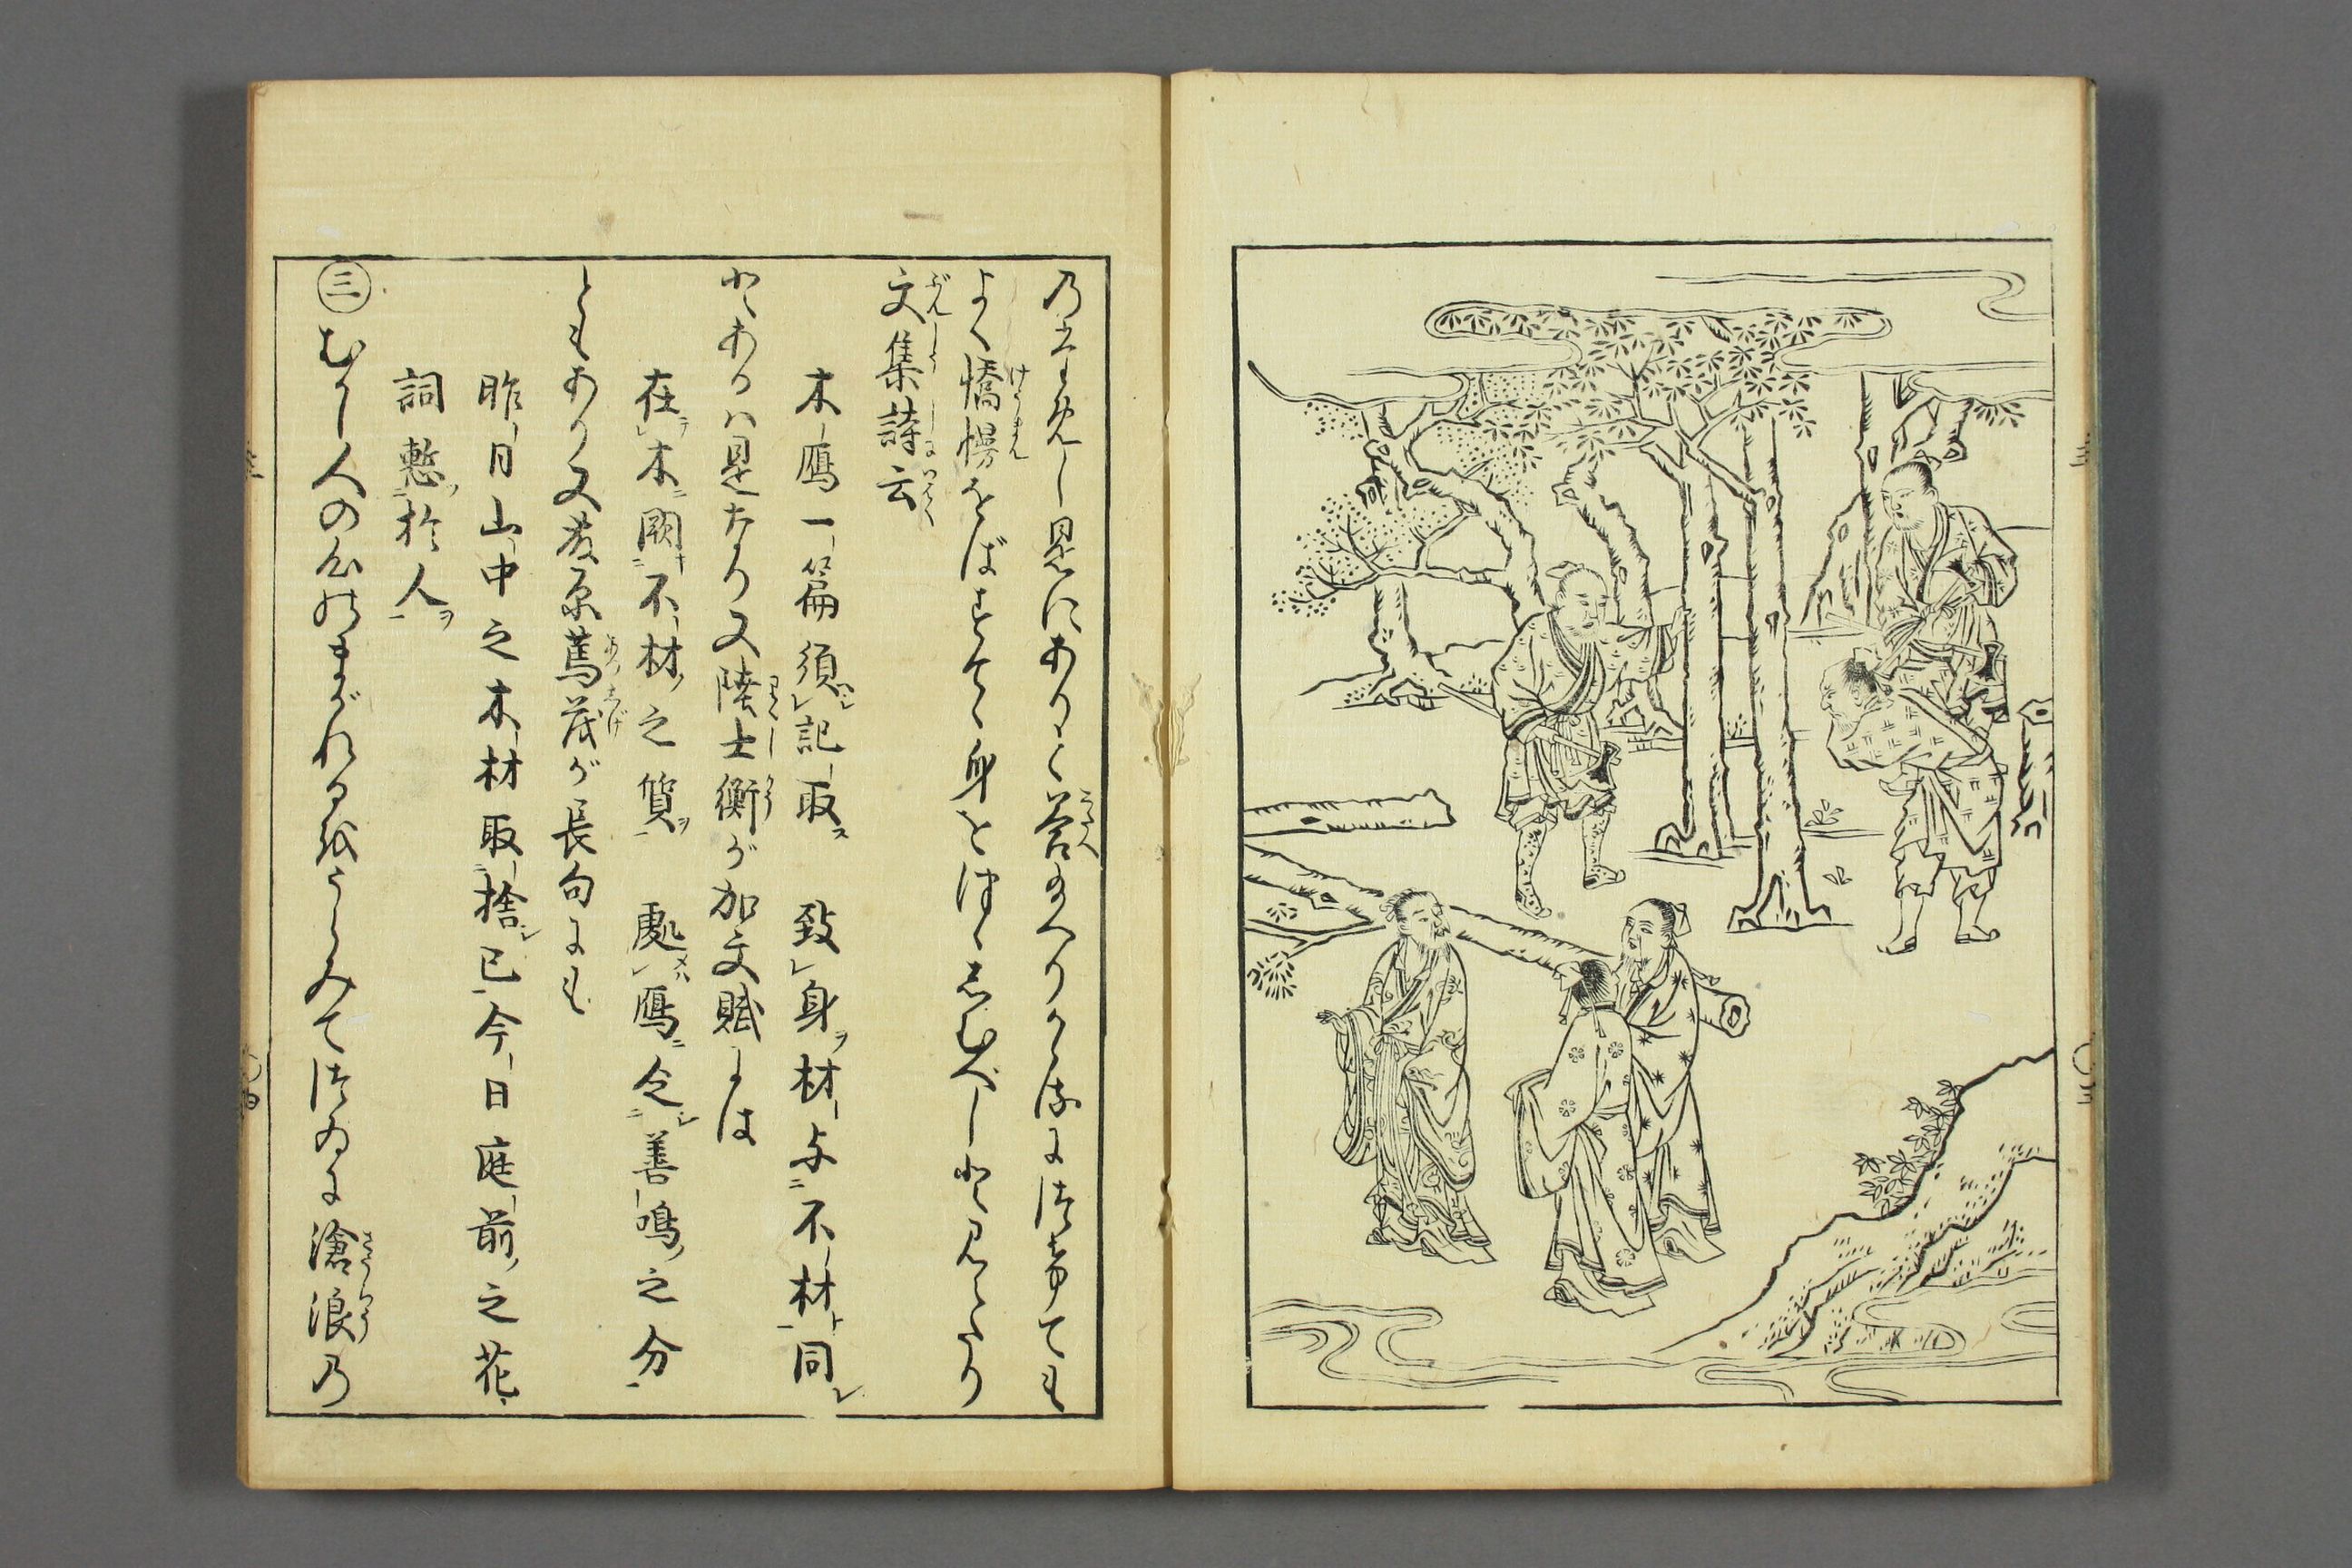 乃ためし是にありと答給へりかほにつけても
よく憍慢をばすてゝ身をはゝむべしと見えたり
文集詩云
木鴈一篇須記取 致身材与不材同
とあるハ是なり又陸士衡が加文賦には
在木闕不材之質 處鴈令善鳴之分
ともあり又藤原篤茂が長句にも
昨日山中之木材取捨已今日庭前之花
詞慙於人
㊂むかし人の心のまがれるをうらみてつゐに滄浪乃